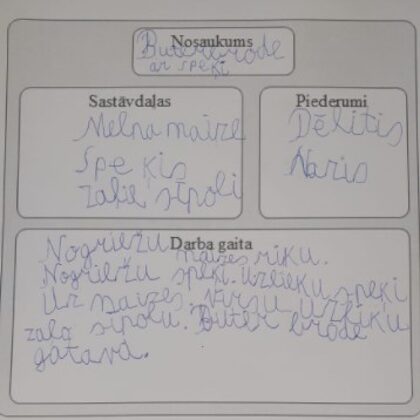 Nosaukums
Buterbrode
ar speķi
Sastāvdaļas
Melna maize
Speķis
zaļie sīpoli
Piederumi
Dēlītis
Nazis
Darba gaita
Nogriežu maizes riku.
Nogriežu speķi. Uzlieku speķi
Uz maizes. Virsu uzliku
zaļo sīpolu. Buterbrode
gatava.